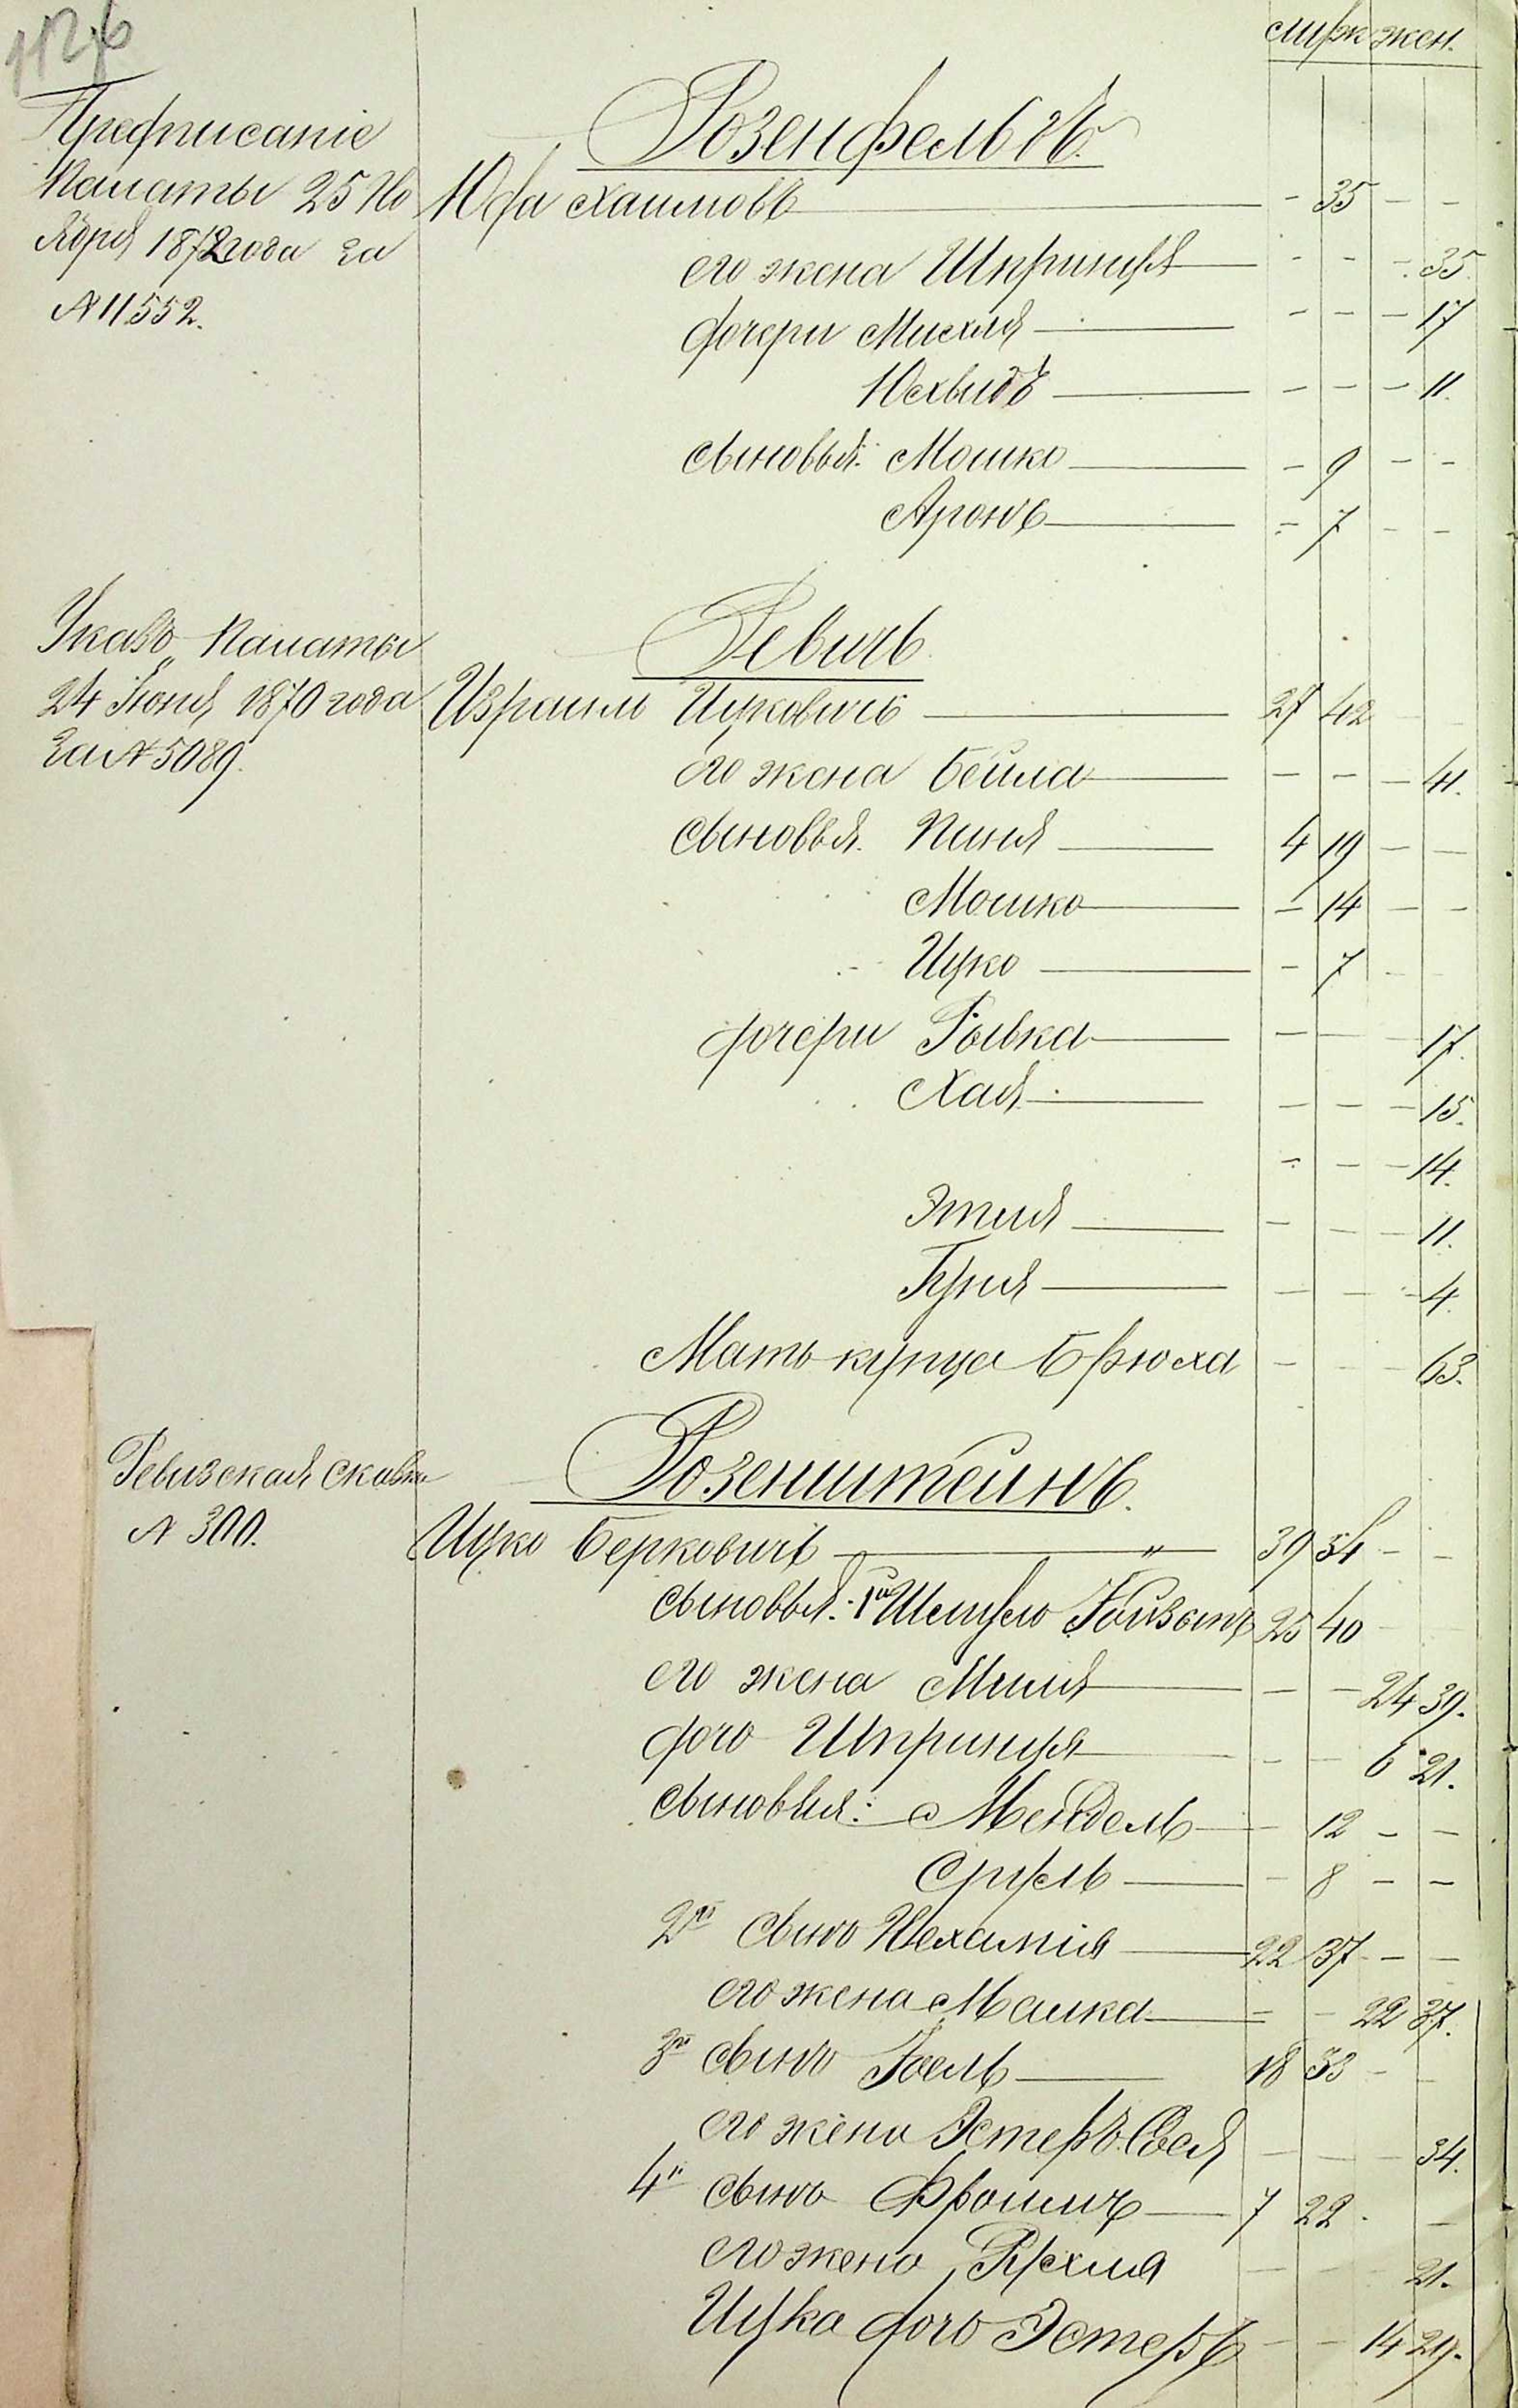 1126
муж жен.
Предписаніе
Палаты 25 Но
ября 1872 года за
№ 11552.
Розенфельдъ.
Юда Хаимовъ - 35 - -
его жена Шпринця - - - 35.
дочери Михля - - - 17
Юхвидъ - - - 11.
сыновья: Мошко - 9 - -
Аронъ - 7 - -
Указъ Палаты
24 Іюня 1870 года
за № 5089.
Ревичъ.
Израиль Ицковичъ 27 42 - -
его жена Бейла - - - 41.
сыновья. Пиня 4 19 - -
Мошко - 14 - -
Ицко - 7 - -
дочери Рывка - - - 17.
Хая - - - 15.
- - - 14.
Этля - - - 11.
Груня - - - 4.
Мать купца Брюха - - - 63.
Ревизская сказка
№ 300.
Розенштейнъ.
Ицко Берковичъ " 39 54 - -
сыновья: 1й Шмуль 25 40 - -
его жена Миля - - 24 39.
дочь Шпринця - - 6 21.
сыновья: Мендель - 12 - -
Сруль - 8 - -
2й сынъ Нехамія 22 37 - -
его жена Малка - - 22 37.
3й сынъ Іоель 18 33 - -
его жена Эстеръ Сося - - - 34.
4й сынъ Фроимъ 7 22 - -
его жена Рухля - - - 21.
Ицка дочь Эстеръ - - 14 29.